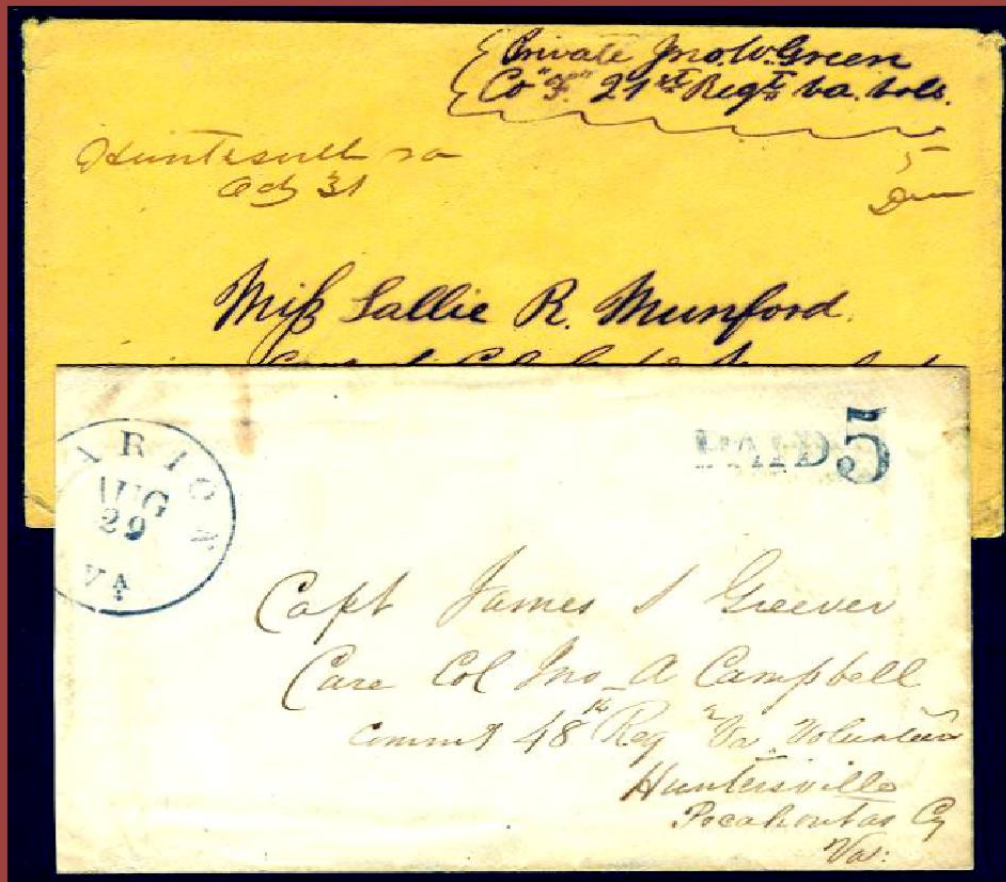 Private Jno. W. Green
Co "F." 21st Regt Va. Vols.
Huntersvill va
5
Due
Oct 31
Miss Sallie R. Munford.
ARION
AUG
29
VA
PAID 5
Capt James S Greever
Care Col Jno A Campbell
48th Reg Va Volunteers
Huntersville
Pocahontas Cy
Va.